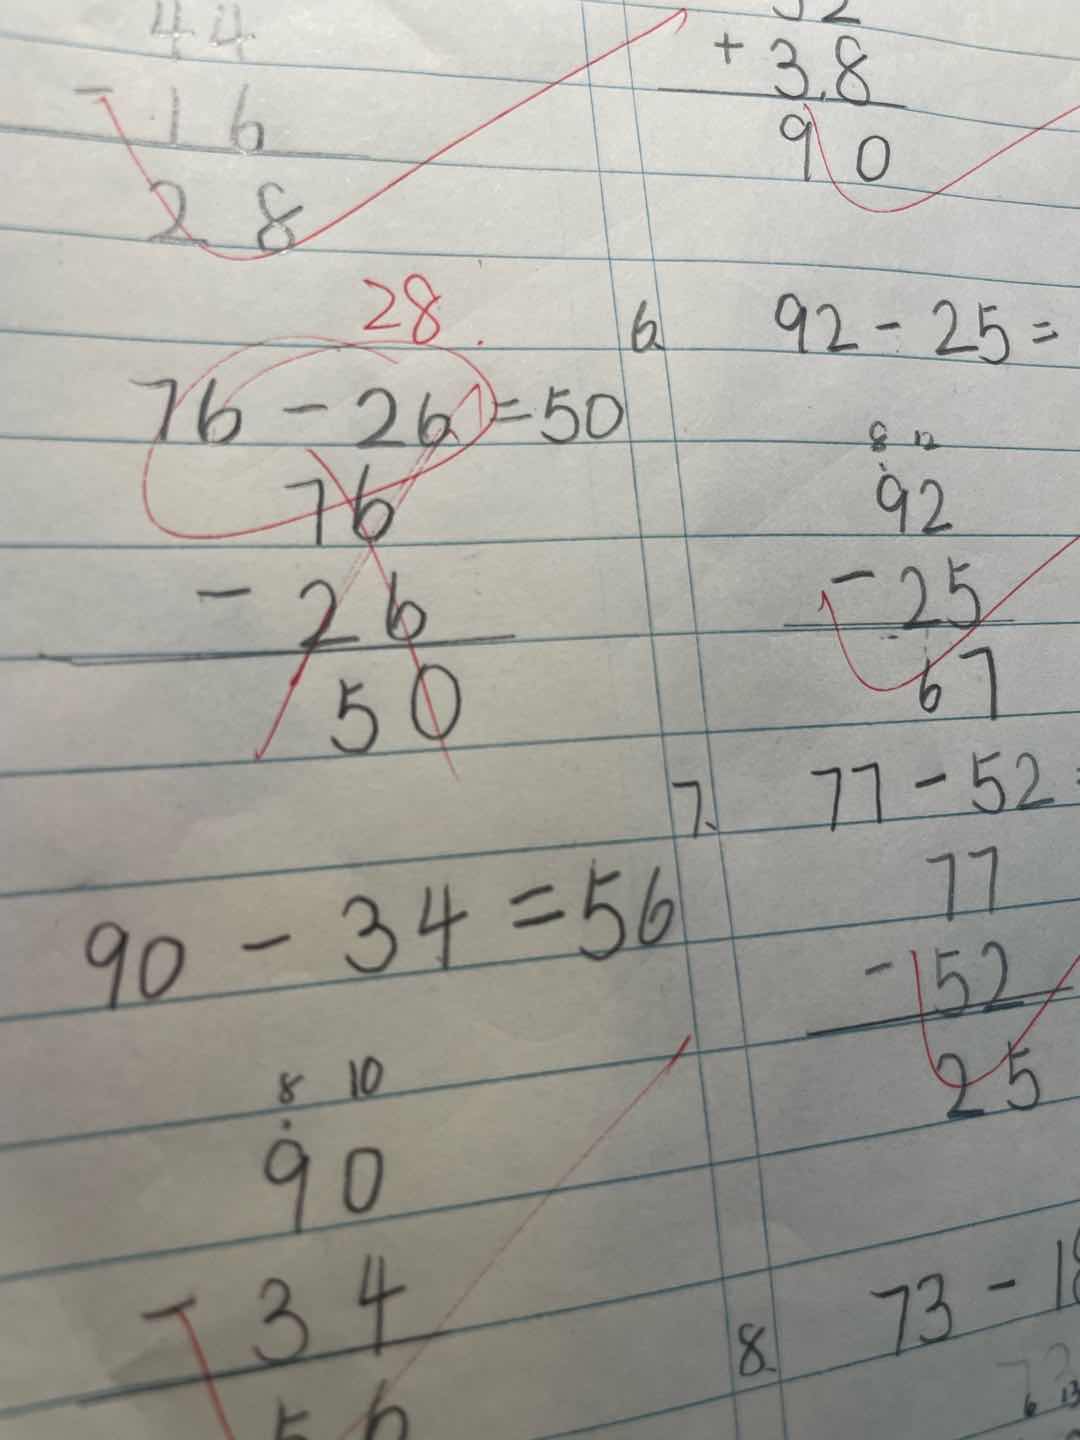 44
- 16
28
28.
76 - 26 = 50
76
- 26
50
90 - 34 = 56
8 10
90
- 34
56
52
+ 38
90
6. 92 - 25 =
8 12
92
- 25
67
7. 77 - 52 =
77
- 52
25
8. 73 - 18
73
6 13